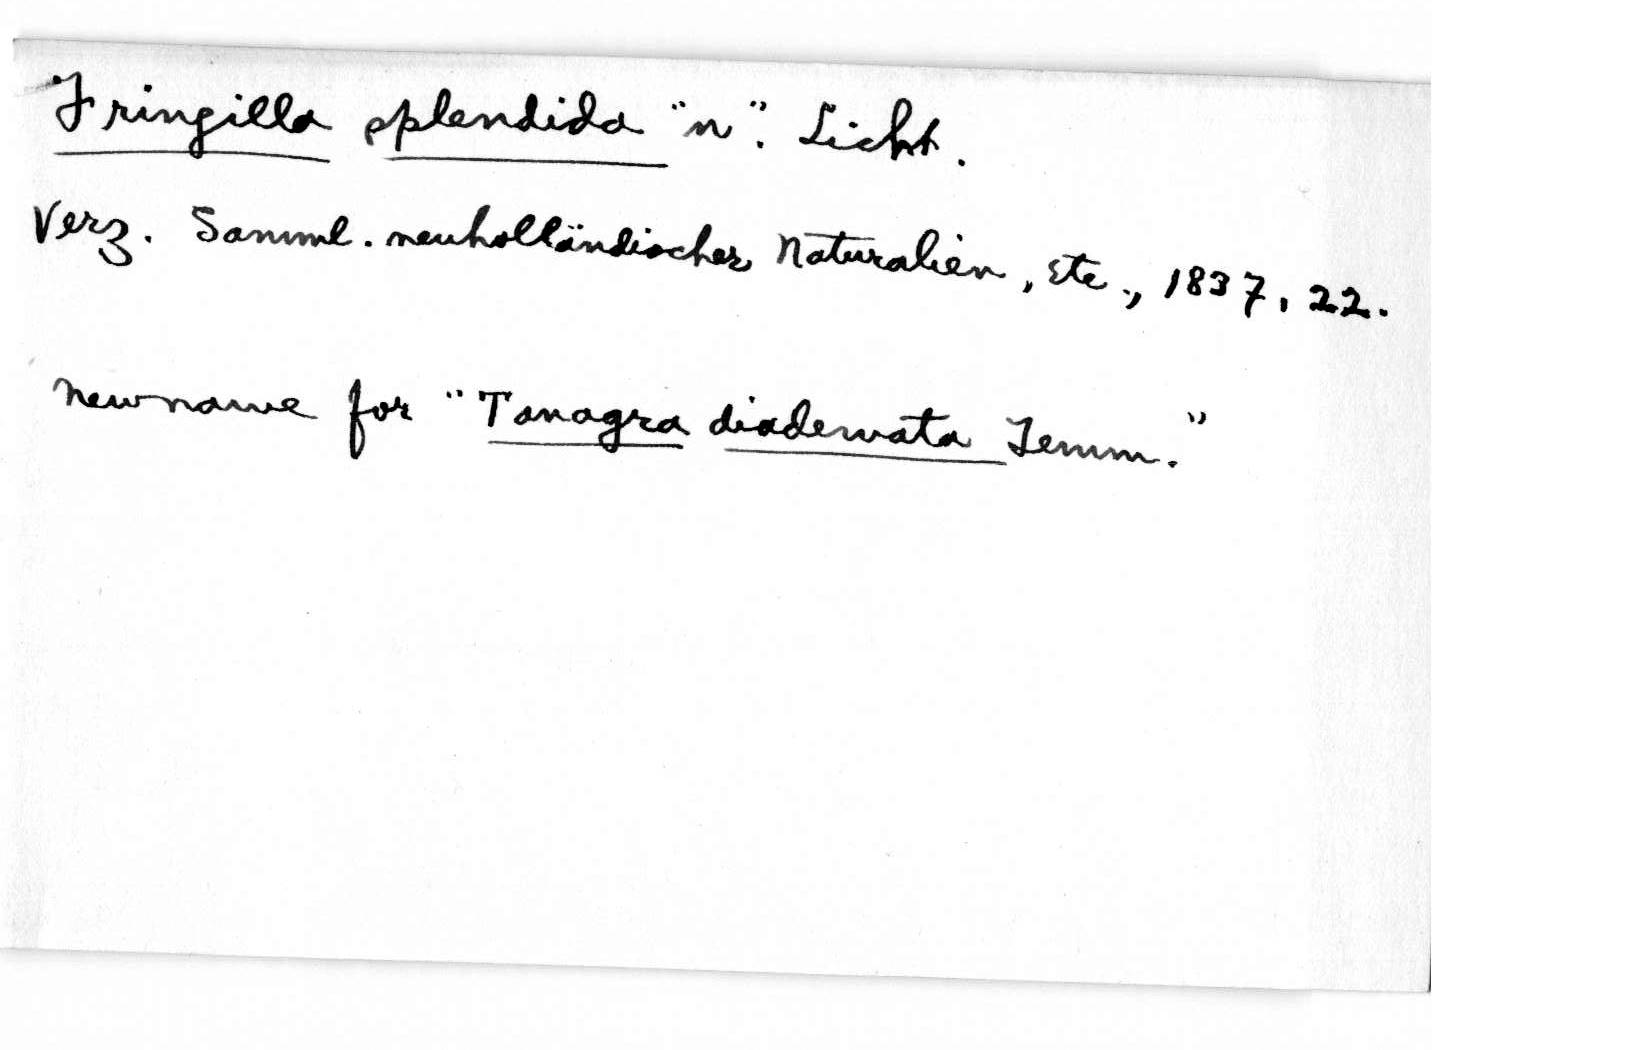 Fringilla splendida "n". Licht.
Verz. Samml. neuholländischer Naturalien, etc., 1837, 22.
New name for "Tanagra diademata Temm."